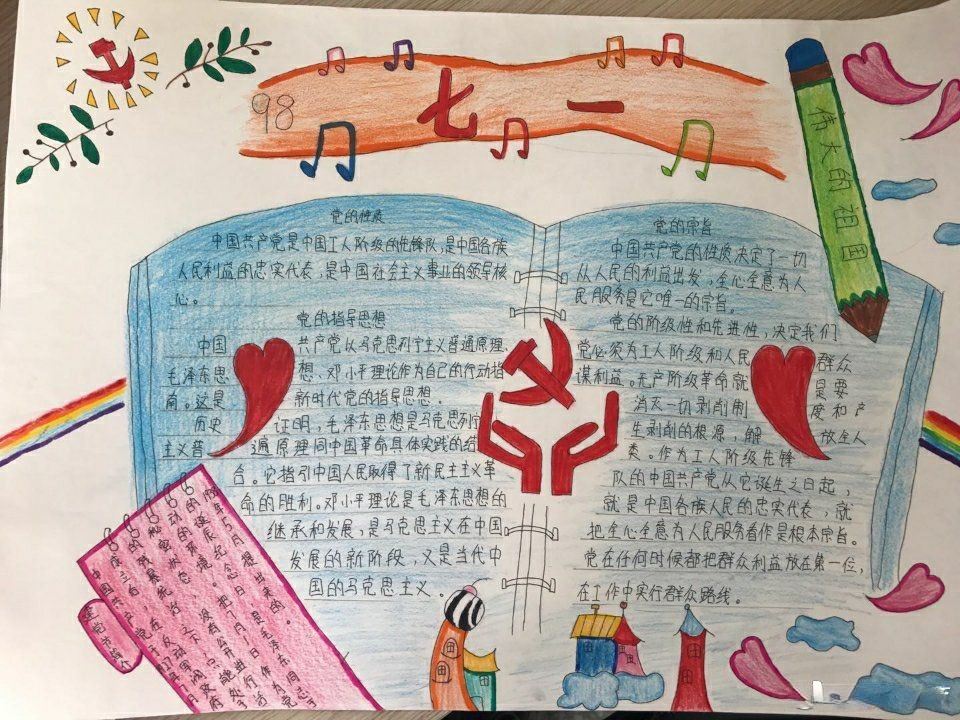 98
七一
伟大的祖国
党的性质
中国共产党是中国工人阶级的先锋队,是中国各族
人民利益的忠实代表,是中国社会主义事业的领导核
心。
党的指导思想
中国 共产党以马克思列宁主义普通原理、
毛泽东思 想、邓小平理论作为自己的行动指
南。这是 新时代党的指导思想。
历史 证明,毛泽东思想是马克思列宁
主义普 遍原理同中国革命具体实践的结
合。它指引中国人民取得了新民主主义革
命的胜利。邓小平理论是毛泽东思想的
继承和发展,是马克思主义在中国
发展的新阶段,又是当代中
国的马克思主义。
党的宗旨
中国共产党的性质决定了一切
从人民的利益出发,全心全意为人
民服务是它唯一的宗旨。
党的阶级性和先进性,决定我们
党必须为工人阶级和人民 群众
谋利益。无产阶级革命就 是要
消灭一切剥削制 度和产
生剥削的根源,解 放全人
类。作为工人阶级先锋
队的中国共产党从它诞生之日起,
就是中国各族人民的忠实代表,就
把全心全意为人民服务看作是根本宗旨。
党在任何时候都把群众利益放在第一位,
在工作中实行群众路线。